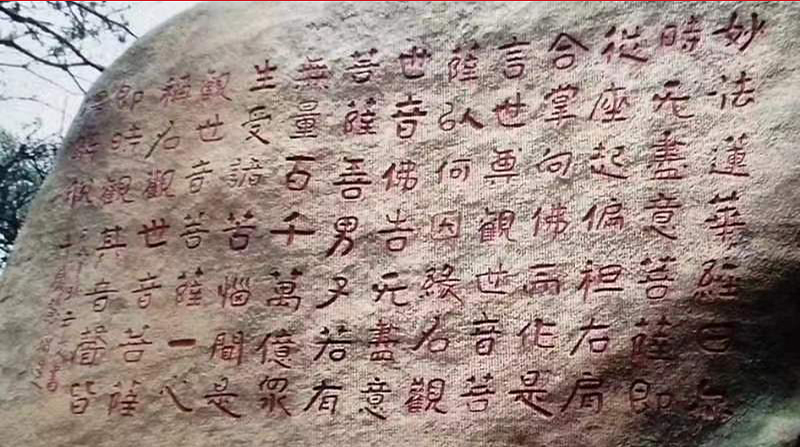 妙法蓮華經曰爾
時无盡意菩薩即
從座起偏袒右肩
合掌向佛而作是
言世尊觀世音菩
薩以何因緣名觀
世音佛告无盡意
菩薩善男子若有
無量百千萬億眾
生受諸苦惱聞是
觀世音菩薩一心
稱名觀世音菩薩
即時觀其音聲皆
得解脫